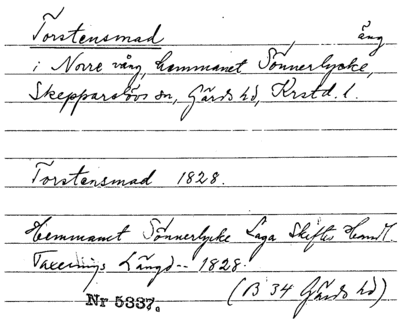 Torstensmad äng
i Norre vång, hemmanet Sönnerlycke,
Skepparslövs sn, Gärds hd, Krstd. l.
Torstensmad 1828.
Hemmanet Sönnerlycke Laga Skiftes Handl.
Taxerings Längd -- 1828.
(B 34 Gärds hd)
Nr 5337.